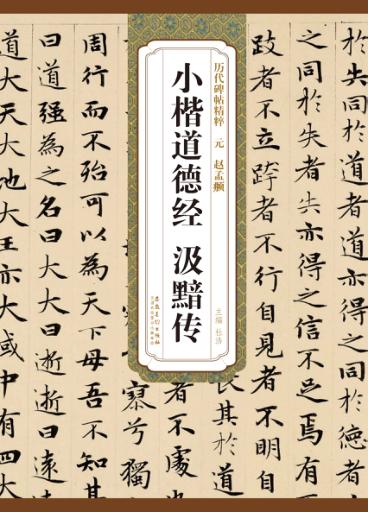 历代碑帖精粹 元 赵孟頫
小楷道德经 汲黯传
主编 杜浩
安徽美术出版社
於道者道亦得之同於德者
之同於失者失亦得之信不足焉有
跂者不立跨者不行自見者不明自
其於道
者不處也
寥兮獨
周行而不殆可以為天下母吾不知其
曰道強為之名曰大大曰逝逝曰遠
道大天大地大王亦大域中有四大